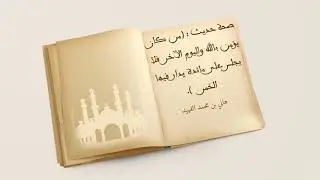 صحة حديث : (من كان
يؤمن بالله واليوم الآخر فلا
يجلس على مائدة يدار فيها
الخمر ).
هاني بن محمد العبيد